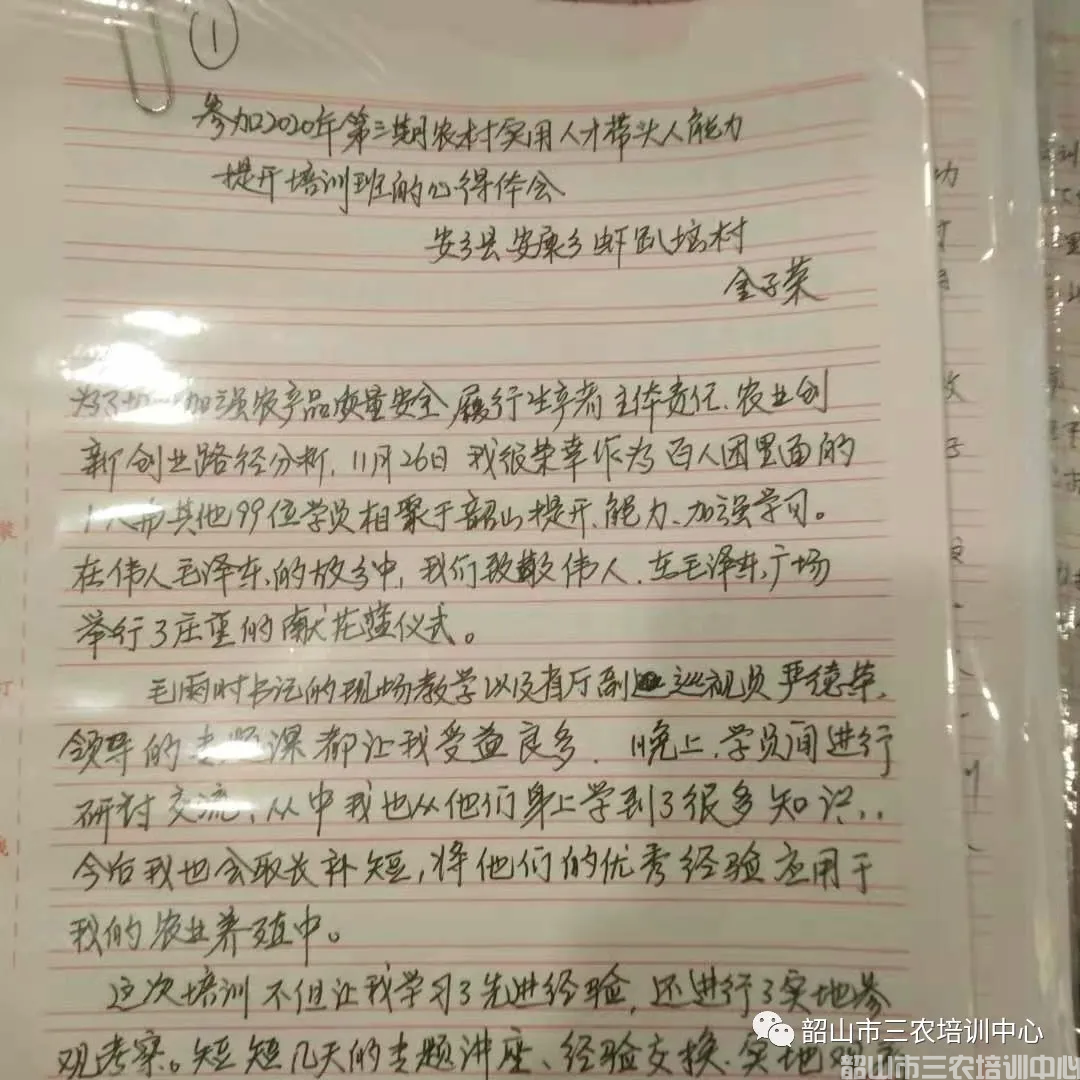 ①
参加2020年第三期农村实用人才带头人能力
提升培训班的心得体会
安乡县安康乡虾趴垴村
金子荣
为了进一步加强农产品质量安全履行生产者主体责任、农业创
新创业路径分析,11月26日我很荣幸作为百人团里面的
1人和其他99位学员相聚于韶山提升、能力、加强学习。
在伟人毛泽东的故乡中,我们致敬伟人,在毛泽东广场
举行了庄重的献花篮仪式。
毛雨时书记的现场教学以及省厅副巡视员严德荣,
领导的专题课都让我受益良多,晚上,学员间进行
研讨交流,从中我也从他们身上学到了很多知识,,
今后我也会取长补短,将他们的优秀经验应用于
我的农业养殖中。
这次培训不但让我学习了先进经验,还进行了实地参
观考察。短短几天的专题讲座、经验交换、实地
韶山市三农培训中心
韶山市三农培训中心